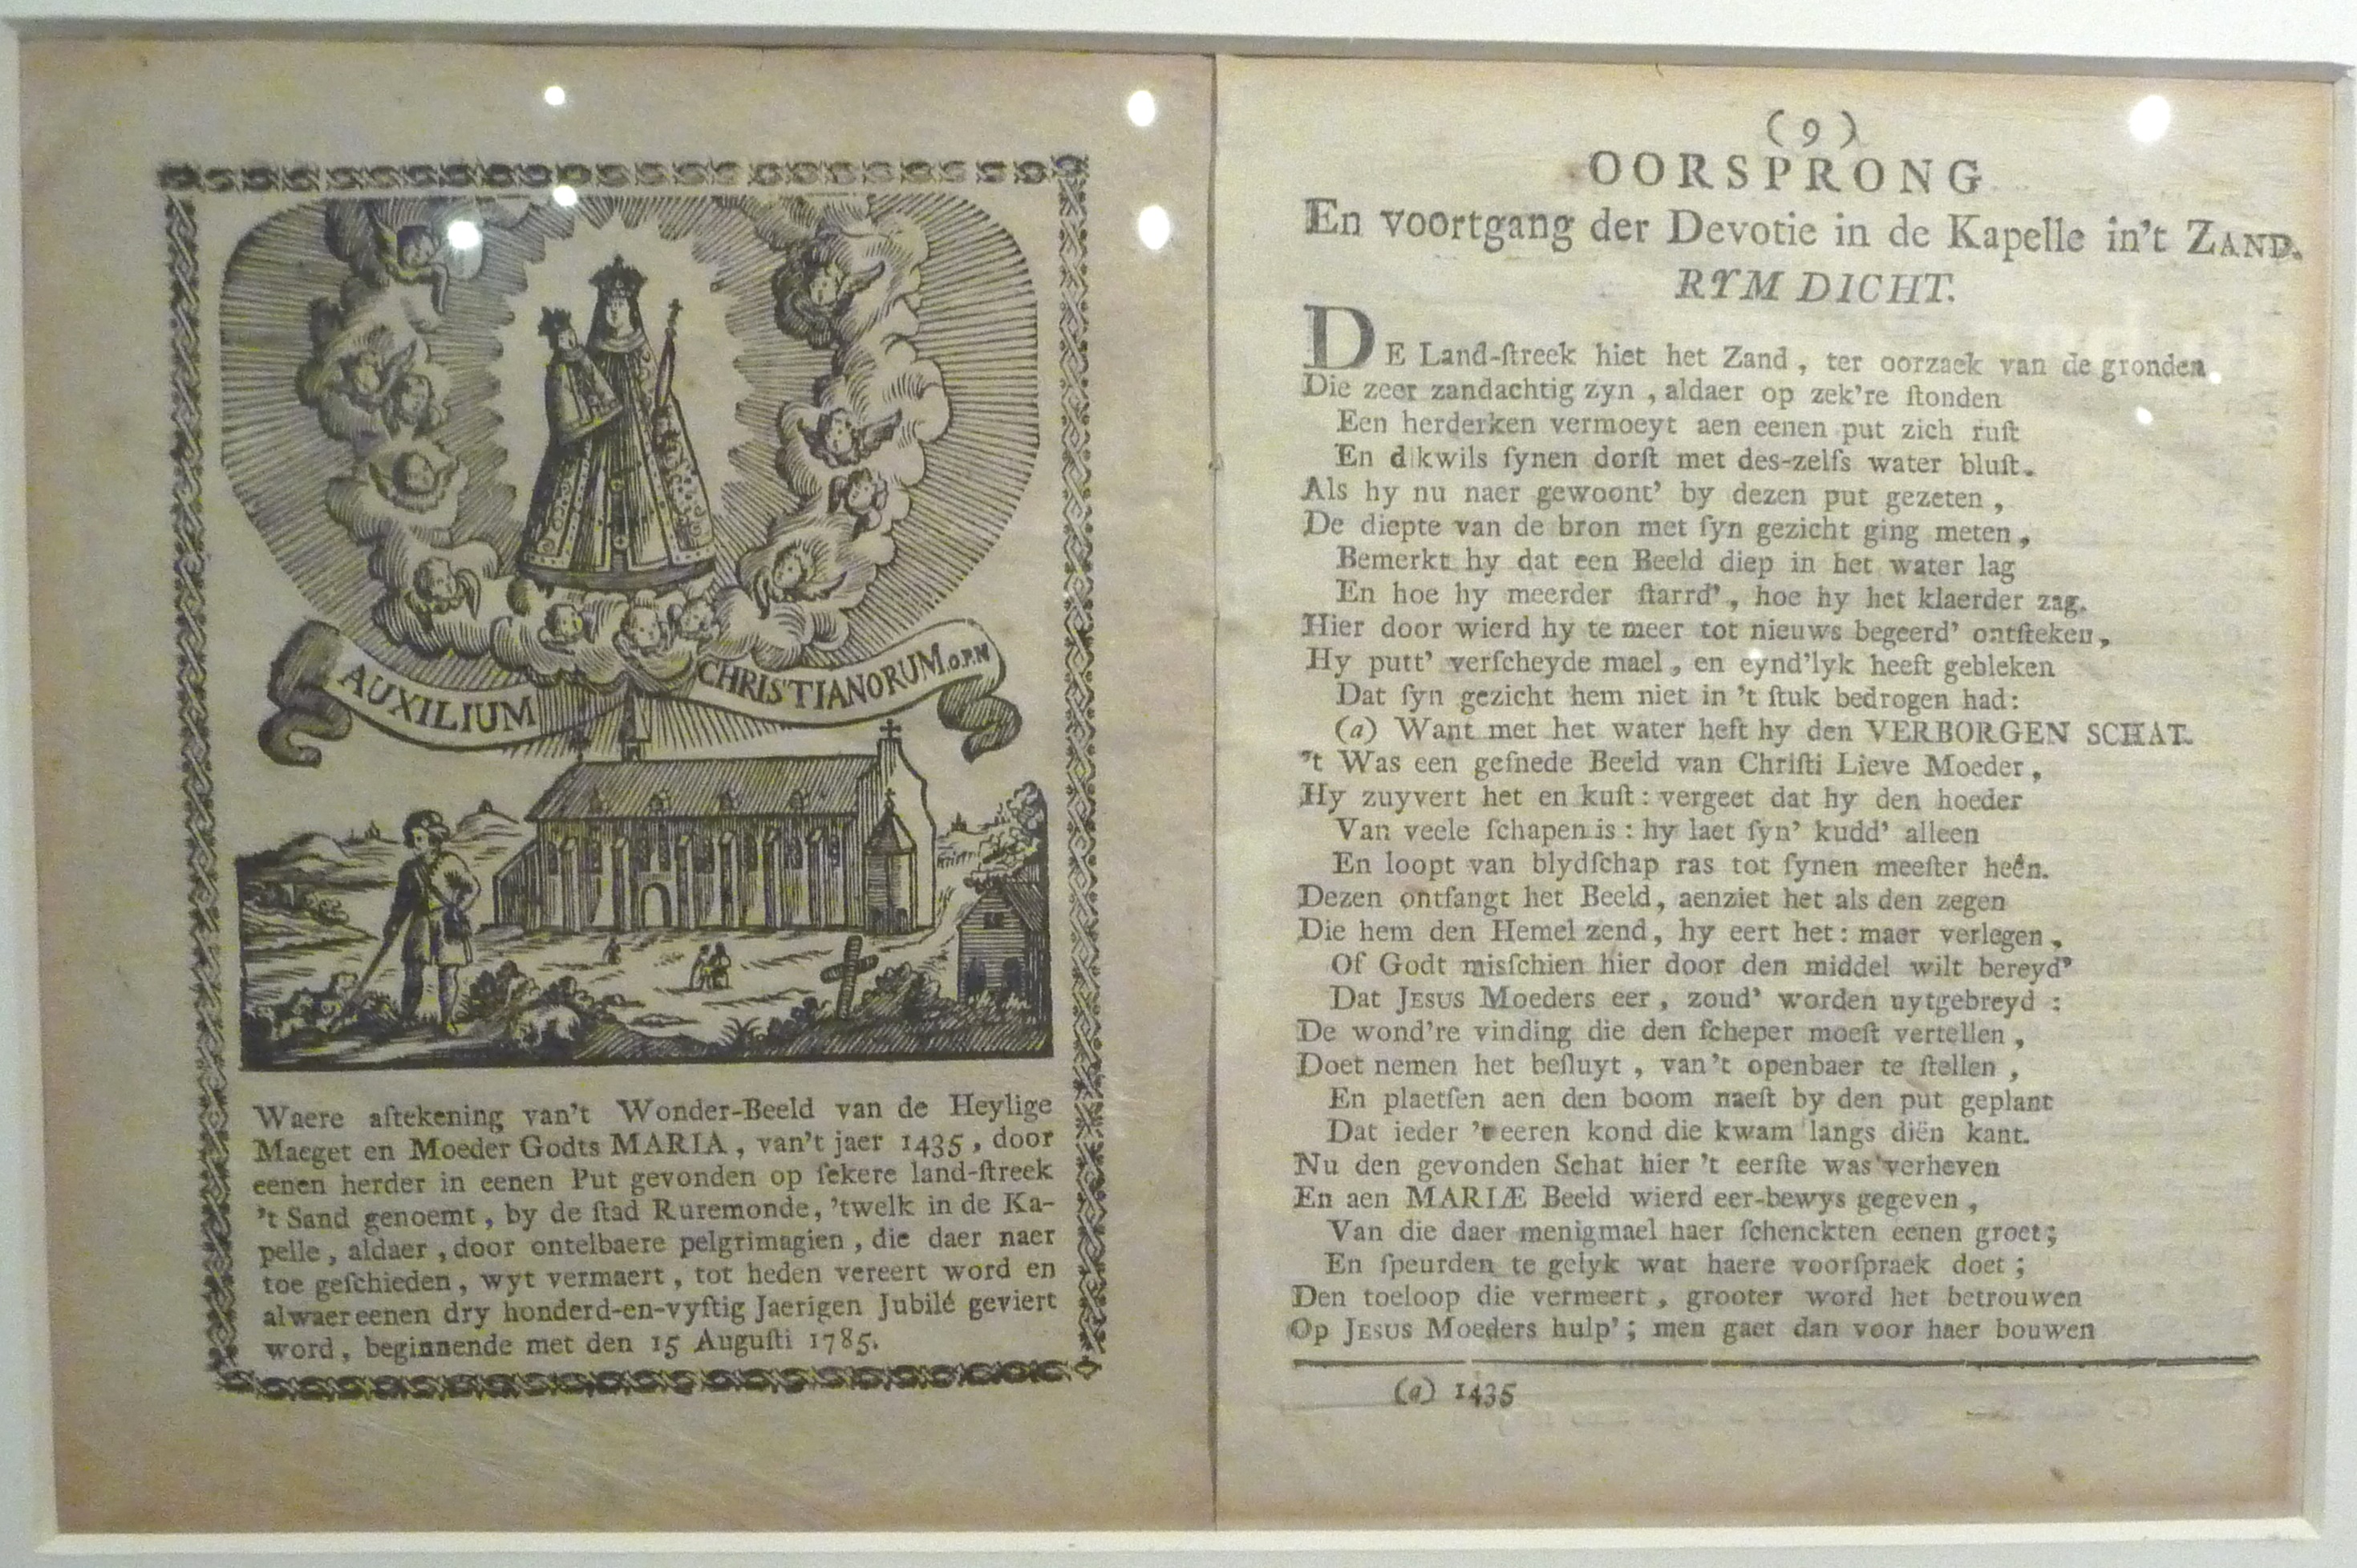 AUXILIUM CHRISTIANORUM O.P.N
Waere aftekening van't Wonder-Beeld van de Heylige
Maeget en Moeder Godts MARIA, van't jaer 1435, door
eenen herder in eenen Put gevonden op ſekere land-ſtreek
't Sand genoemt, by de ſtad Ruremonde, 'twelk in de Ka-
pelle, aldaer, door ontelbaere pelgrimagien, die daer naer
toe geſchieden, wyt vermaert, tot heden vereert word en
alwaer eenen dry honderd-en-vyftig Jaerigen Jubilé geviert
word, beginnende met den 15 Auguſti 1785.
(9)
OORSPRONG
En voortgang der Devotie in de Kapelle in't ZAND.
RYM DICHT.
DE Land-ſtreek hiet het Zand, ter oorzaek van de gronden
Die zeer zandachtig zyn, aldaer op zek're ſtonden
Een herderken vermoeyt aen eenen put zich ruſt
En dikwils ſynen dorſt met des-zelfs water bluſt.
Als hy nu naer gewoont' by dezen put gezeten,
De diepte van de bron met ſyn gezicht ging meten,
Bemerkt hy dat een Beeld diep in het water lag
En hoe hy meerder ſtarrd', hoe hy het klaerder zag.
Hier door wierd hy te meer tot nieuws begeerd' ontſteken,
Hy putt' verſcheyde mael, en eynd'lyk heeft gebleken
Dat ſyn gezicht hem niet in 't ſtuk bedrogen had:
(a) Want met het water heft hy den VERBORGEN SCHAT.
't Was een geſnede Beeld van Chriſti Lieve Moeder,
Hy zuyvert het en kuſt: vergeet dat hy den hoeder
Van veele ſchapen is: hy laet ſyn' kudd' alleen
En loopt van blydſchap ras tot ſynen meeſter heên.
Dezen ontfangt het Beeld, aenziet het als den zegen
Die hem den Hemel zend, hy eert het: maer verlegen,
Of Godt misſchien hier door den middel wilt bereyd'
Dat JESUS Moeders eer, zoud' worden uytgebreyd:
De wond're vinding die den ſcheper moeſt vertellen,
Doet nemen het beſluyt, van't openbaer te ſtellen,
En plaetſen aen den boom naeſt by den put geplant
Dat ieder 't eeren kond die kwam langs diën kant.
Nu den gevonden Schat hier 't eerſte was verheven
En aen MARIÆ Beeld wierd eer-bewys gegeven,
Van die daer menigmael haer ſchenckten eenen groet;
En ſpeurden te gelyk wat haere voorſpraek doet;
Den toeloop die vermeert, grooter word het betrouwen
Op JESUS Moeders hulp'; men gaet dan voor haer bouwen
(a) 1435